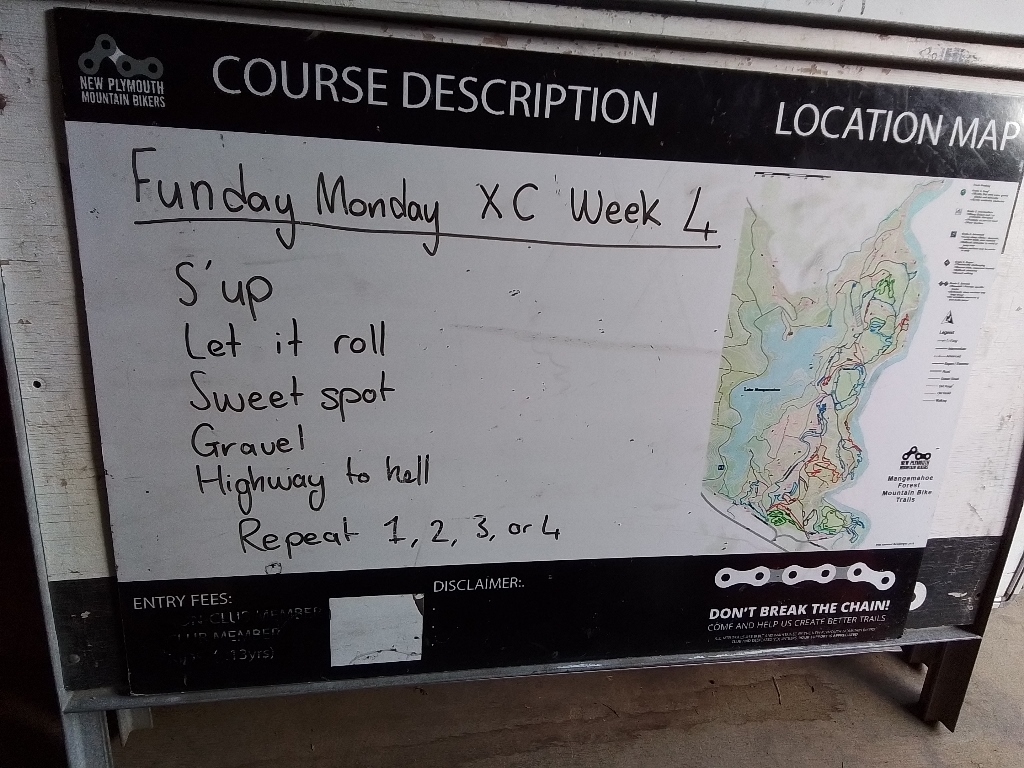 NEW PLYMOUTH
MOUNTAIN BIKERS
COURSE DESCRIPTION
LOCATION MAP
Funday Monday XC Week 4
S'up
Let it roll
Sweet spot
Gravel
Highway to hell
Repeat 1, 2, 3, or 4
Lake Mangamahoe
Legend
NEW PLYMOUTH
MOUNTAIN BIKERS
Mangamahoe
Forest
Mountain Bike
Trails
ENTRY FEES:
CLUB MEMBER
MEMBER
13yrs)
DISCLAIMER:.
DON'T BREAK THE CHAIN!
COME AND HELP US CREATE BETTER TRAILS